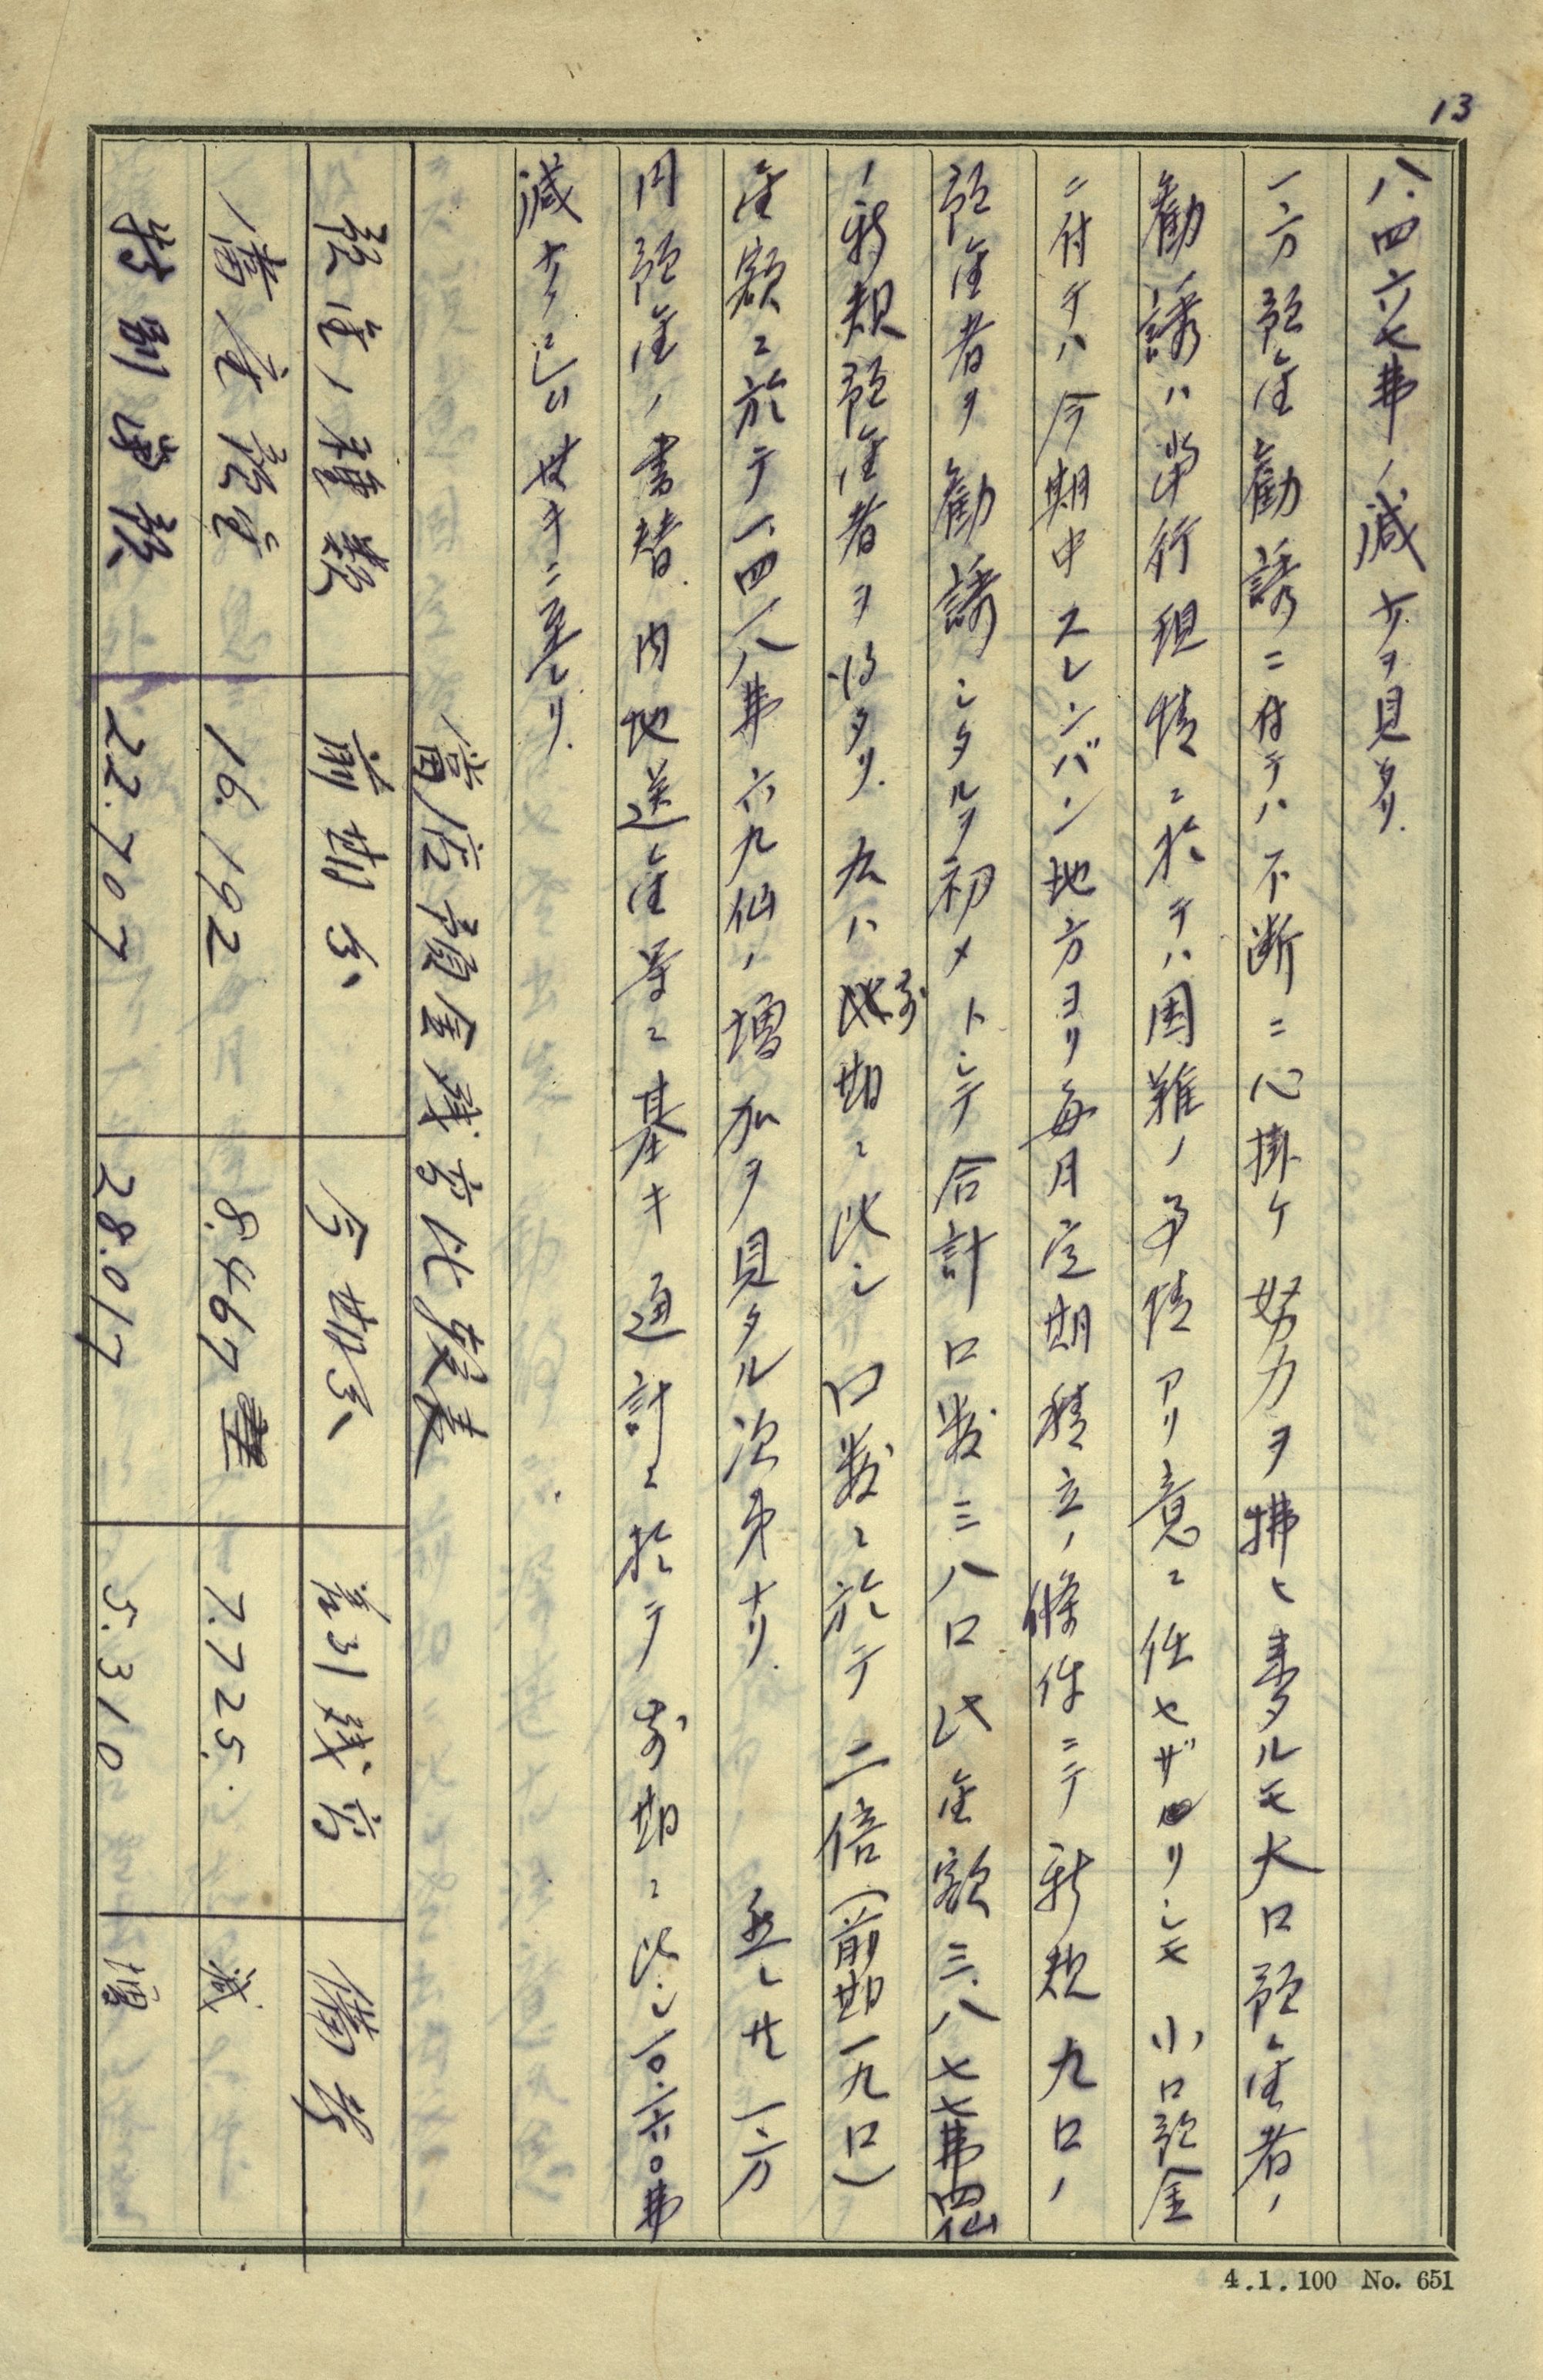 13
八.四六七弗ノ減少ヲ見タリ.
一方預金勧誘ニ付テハ不断ニ心掛ケ努力ヲ拂ヒ来タルモ大口預金者ノ
勧誘ハ当行現情ニ於テハ困難ノ事情アリ意ニ任セザリシモ小口預金
ニ付テハ今期中スレンバン地方ヨリ毎月定期積立ノ條件ニテ新規九口ノ
預金者ヲ勧誘シタルヲ初メトシテ合計口数三八口此金額三.八七七弗四仙
ノ新規預金者ヲ得タリ.之ハ前期ニ比シ口数ニ於テ二倍(前期一九口)
金額ニ於テ一.四一八弗六九仙ノ増加ヲ見タル次第ナリ. 然レ共一方
円預金ノ書替.内地送金等ニ基キ通計ニ於テ前期ニ比シ一〇.一六〇弗
減少シ
ニ至レリ.
當店預金残高比較表
預金ノ種類 前期分 今期分 差引残高 備考
當座預金 16.192 8.467 7.725. 減
特別當預 22.707 28.017 5.310 増
4.1.100 No. 651